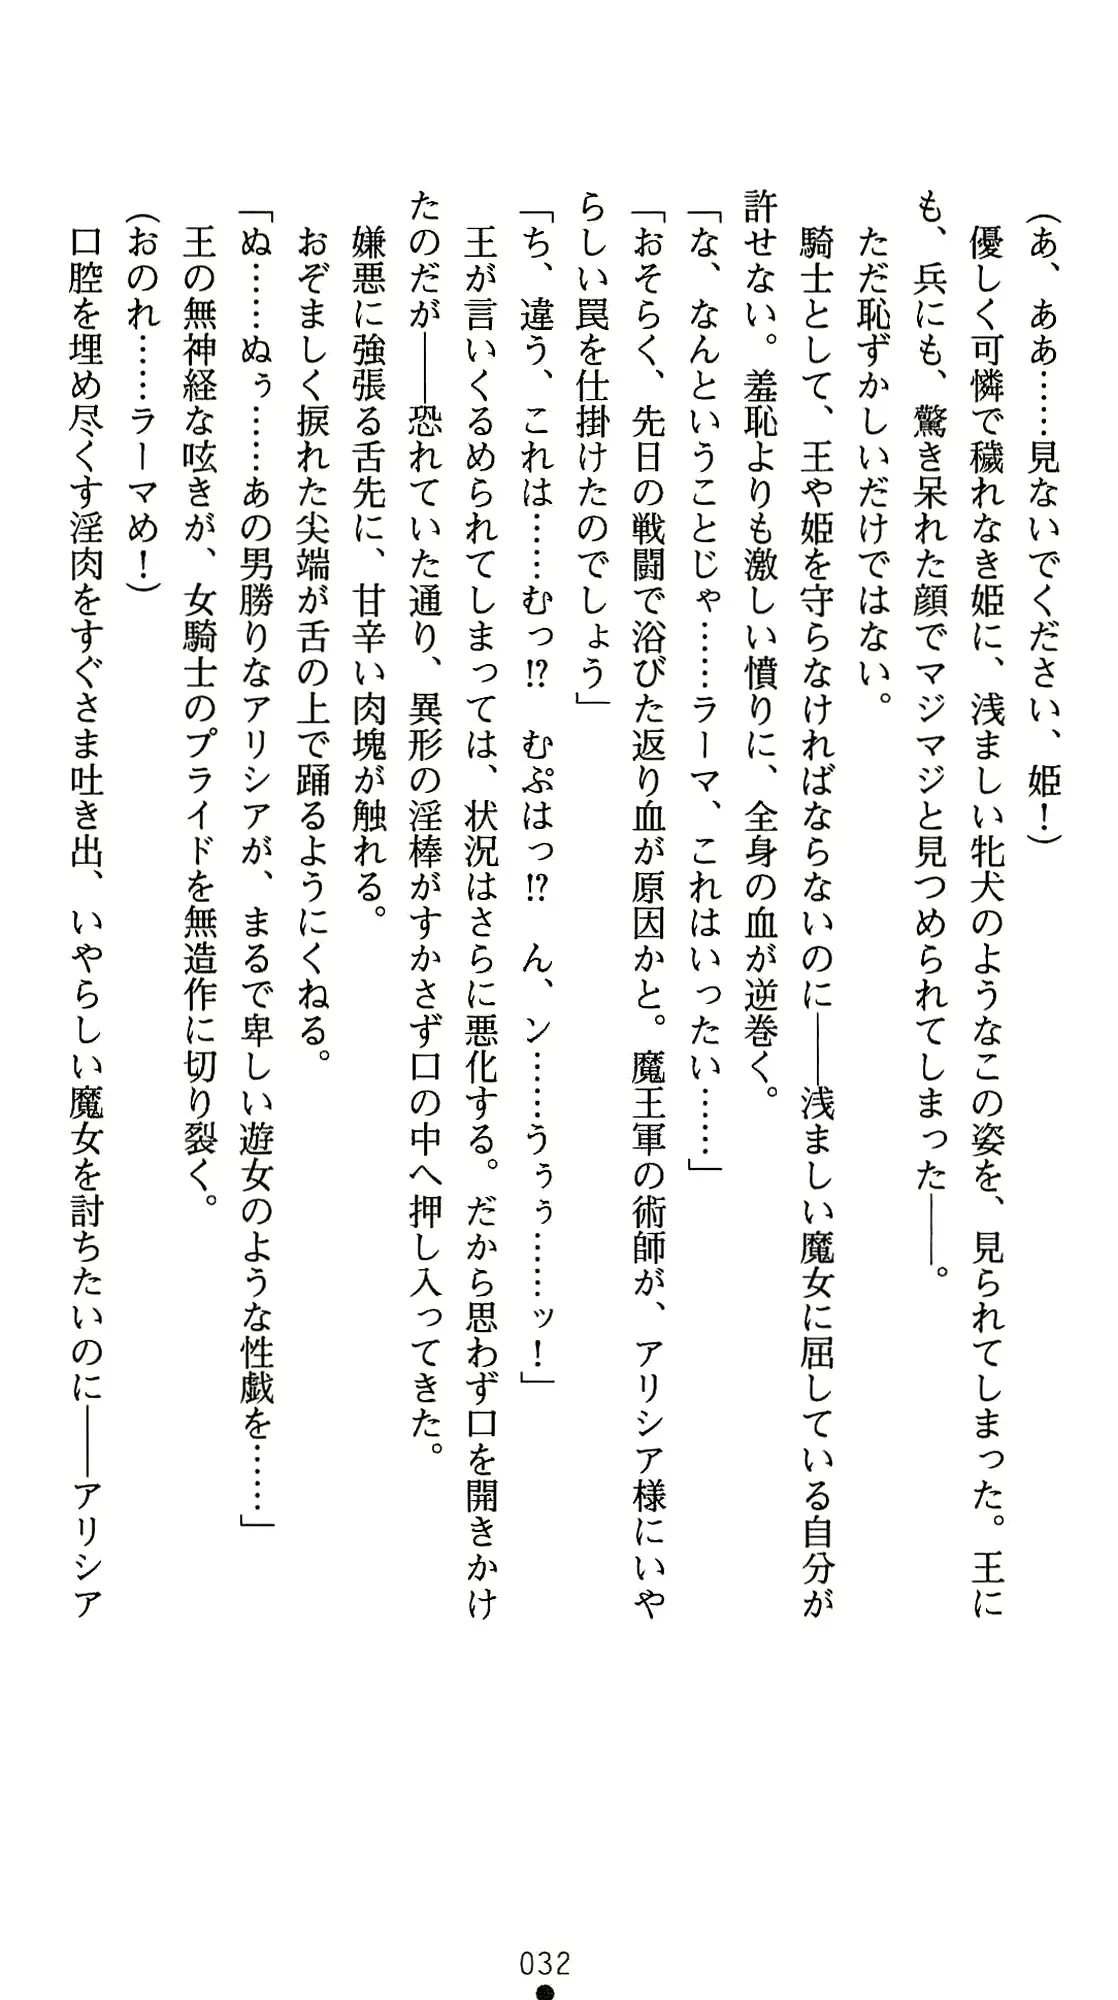 (あ、ああ……見ないでください、姫！)
優しく可憐で穢れなき姫に、浅ましい牝犬のようなこの姿を、見られてしまった。王に
も、兵にも、驚き呆れた顔でマジマジと見つめられてしまった――。
ただ恥ずかしいだけではない。
騎士として、王や姫を守らなければならないのに――浅ましい魔女に屈している自分が
許せない。羞恥よりも激しい憤りに、全身の血が逆巻く。
「な、なんということじゃ……ラーマ、これはいったい……」
「おそらく、先日の戦闘で浴びた返り血が原因かと。魔王軍の術師が、アリシア様にいや
らしい罠を仕掛けたのでしょう」
「ち、違う、これは……むっ!?　むぷはっ!?　ん、ン……うぅぅ……ッ！」
王が言いくるめられてしまっては、状況はさらに悪化する。だから思わず口を開きかけ
たのだが――恐れていた通り、異形の淫棒がすかさず口の中へ押し入ってきた。
嫌悪に強張る舌先に、甘辛い肉塊が触れる。
おぞましく捩れた尖端が舌の上で踊るようにくねる。
「ぬ……ぬぅ……あの男勝りなアリシアが、まるで卑しい遊女のような性戯を……」
王の無神経な呟きが、女騎士のプライドを無造作に切り裂く。
(おのれ……ラーマめ！)
口腔を埋め尽くす淫肉をすぐさま吐き出、いやらしい魔女を討ちたいのに――アリシア
032